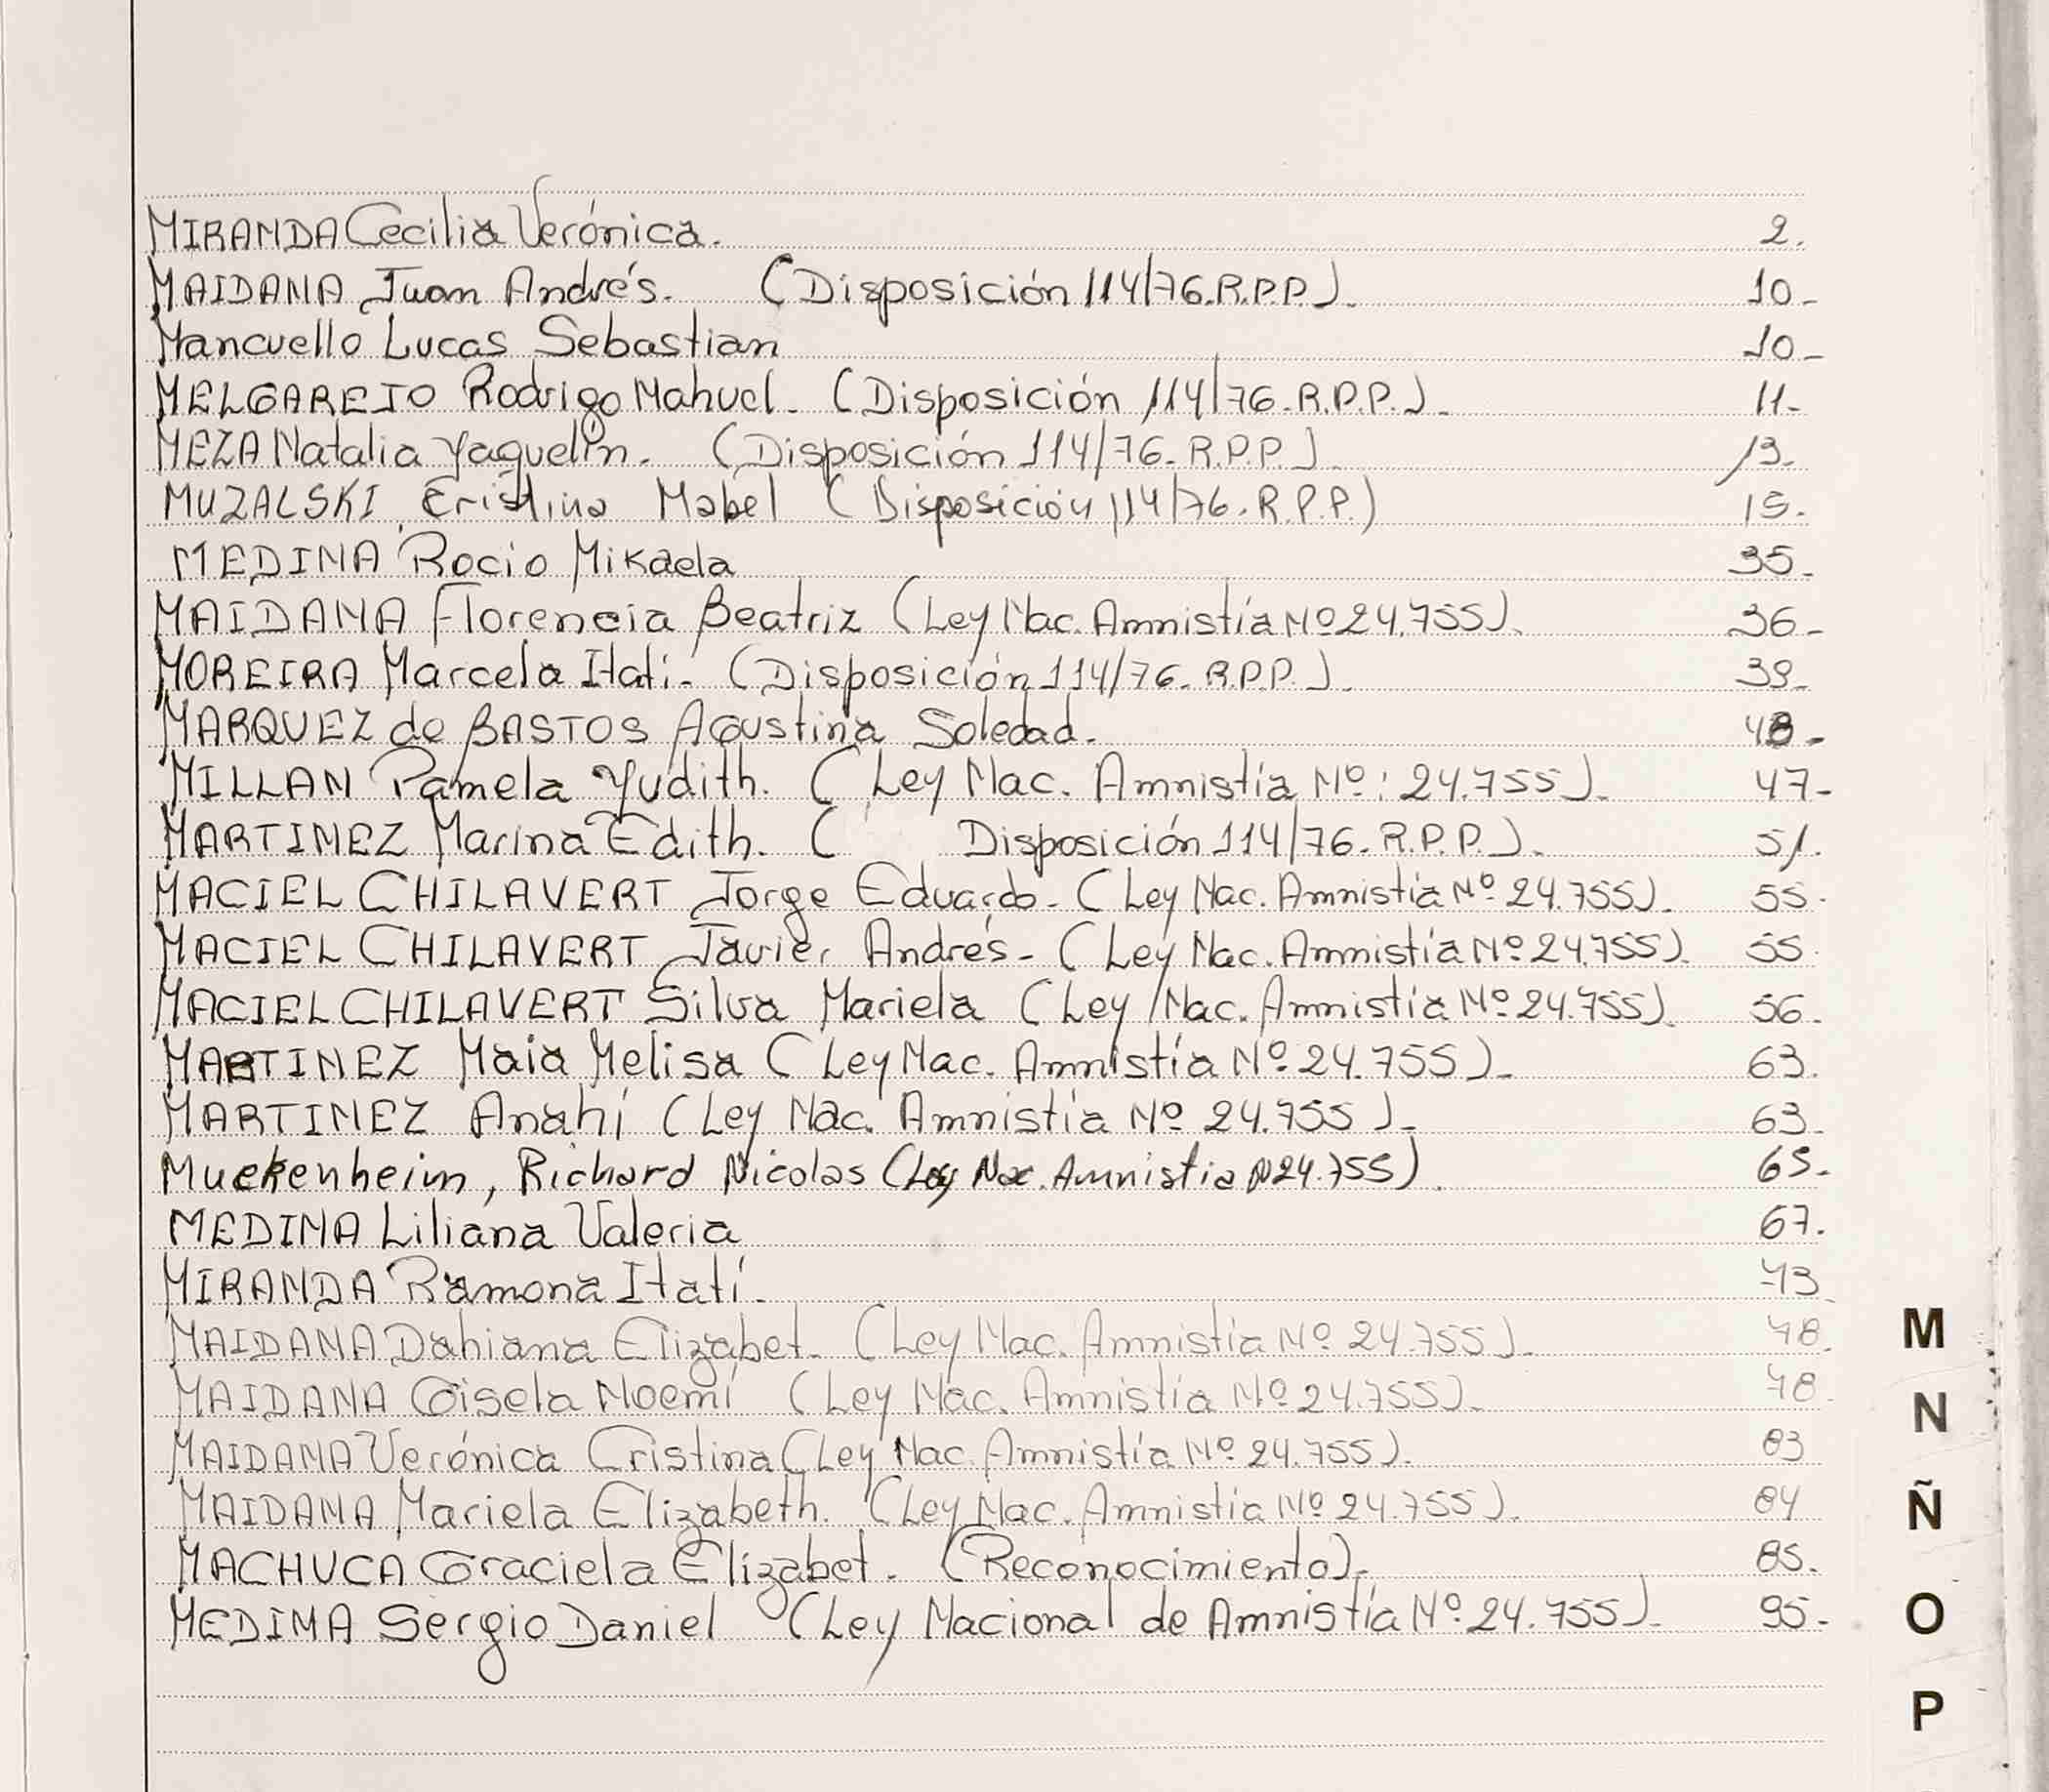 MIRANDA Cecilia Verónica. 2.
MAIDANA Juan Andrés. (Disposición 114/76.R.P.P.). 10-
Mancuello Lucas Sebastian 10-
MELGAREJO Rodrigo Nahuel. (Disposición 114/76.R.P.P.). 11-
MEZA Natalia Yaquelin. (Disposición 114/76.R.P.P.). 13.
MUZALSKI Cristina Mabel (Disposición 114/76.R.P.P.) 15.
MEDINA Rocio Mikaela 35.
MAIDANA Florencia Beatriz (Ley Nac. Amnistía Nº 24.755). 36-
MOREIRA Marcela Itati. (Disposición 114/76.R.P.P.). 39-
MARQUEZ de BASTOS Agustina Soledad.
MILLAN Pamela Yudith. (Ley Nac. Amnistía Nº: 24.755). 47-
MARTINEZ Marina Edith. ( Disposición 114/76.R.P.P.). 51.
MACIEL CHILAVERT Jorge Eduardo. (Ley Nac. Amnistía Nº 24.755). 55.
MACIEL CHILAVERT Javier Andrés. (Ley Nac. Amnistía Nº 24.755). 55.
MACIEL CHILAVERT Silva Mariela (Ley Nac. Amnistía Nº 24.755). 56.
MARTINEZ Maia Melisa (Ley Nac. Amnistía Nº 24.755). 63.
MARTINEZ Anahí (Ley Nac. Amnistía Nº 24.755). 63.
Muckenheim, Richard Nicolas (Ley Nac. Amnistia N 24.755). 65.
MEDINA Liliana Valeria 67.
MIRANDA Ramona Itatí. 73.
MAIDANA Dahiana Elizabet. (Ley Nac. Amnistía Nº 24.755). 78.
MAIDANA Gisela Noemí (Ley Nac. Amnistía Nº 24.755). 78.
MAIDANA Verónica Cristina (Ley Nac. Amnistía Nº 24.755). 83
MAIDANA Mariela Elizabeth. (Ley Nac. Amnistía Nº 24.755). 84
MACHUCA Graciela Elizabet. (Reconocimiento). 85.
MEDINA Sergio Daniel (Ley Nacional de Amnistía Nº 24.755). 95-
M
N
Ñ
O
P